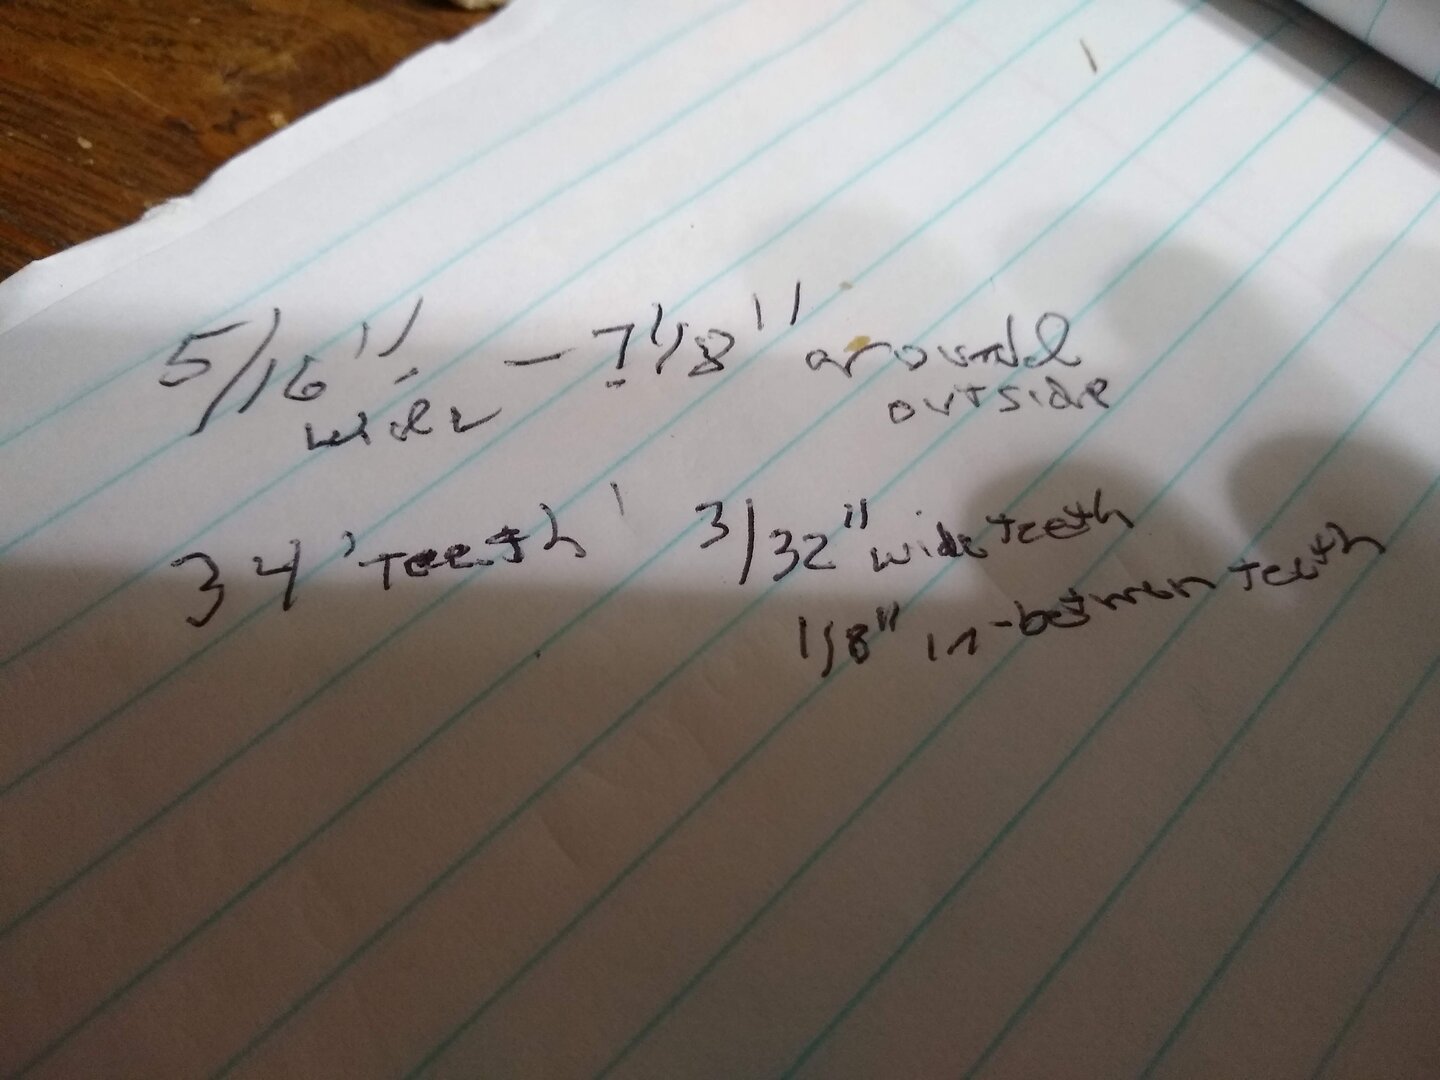 5/16" wide - 7 1/8" around
outside
34 'Teeth' 3/32" wide teeth
1/8" in-between teeth